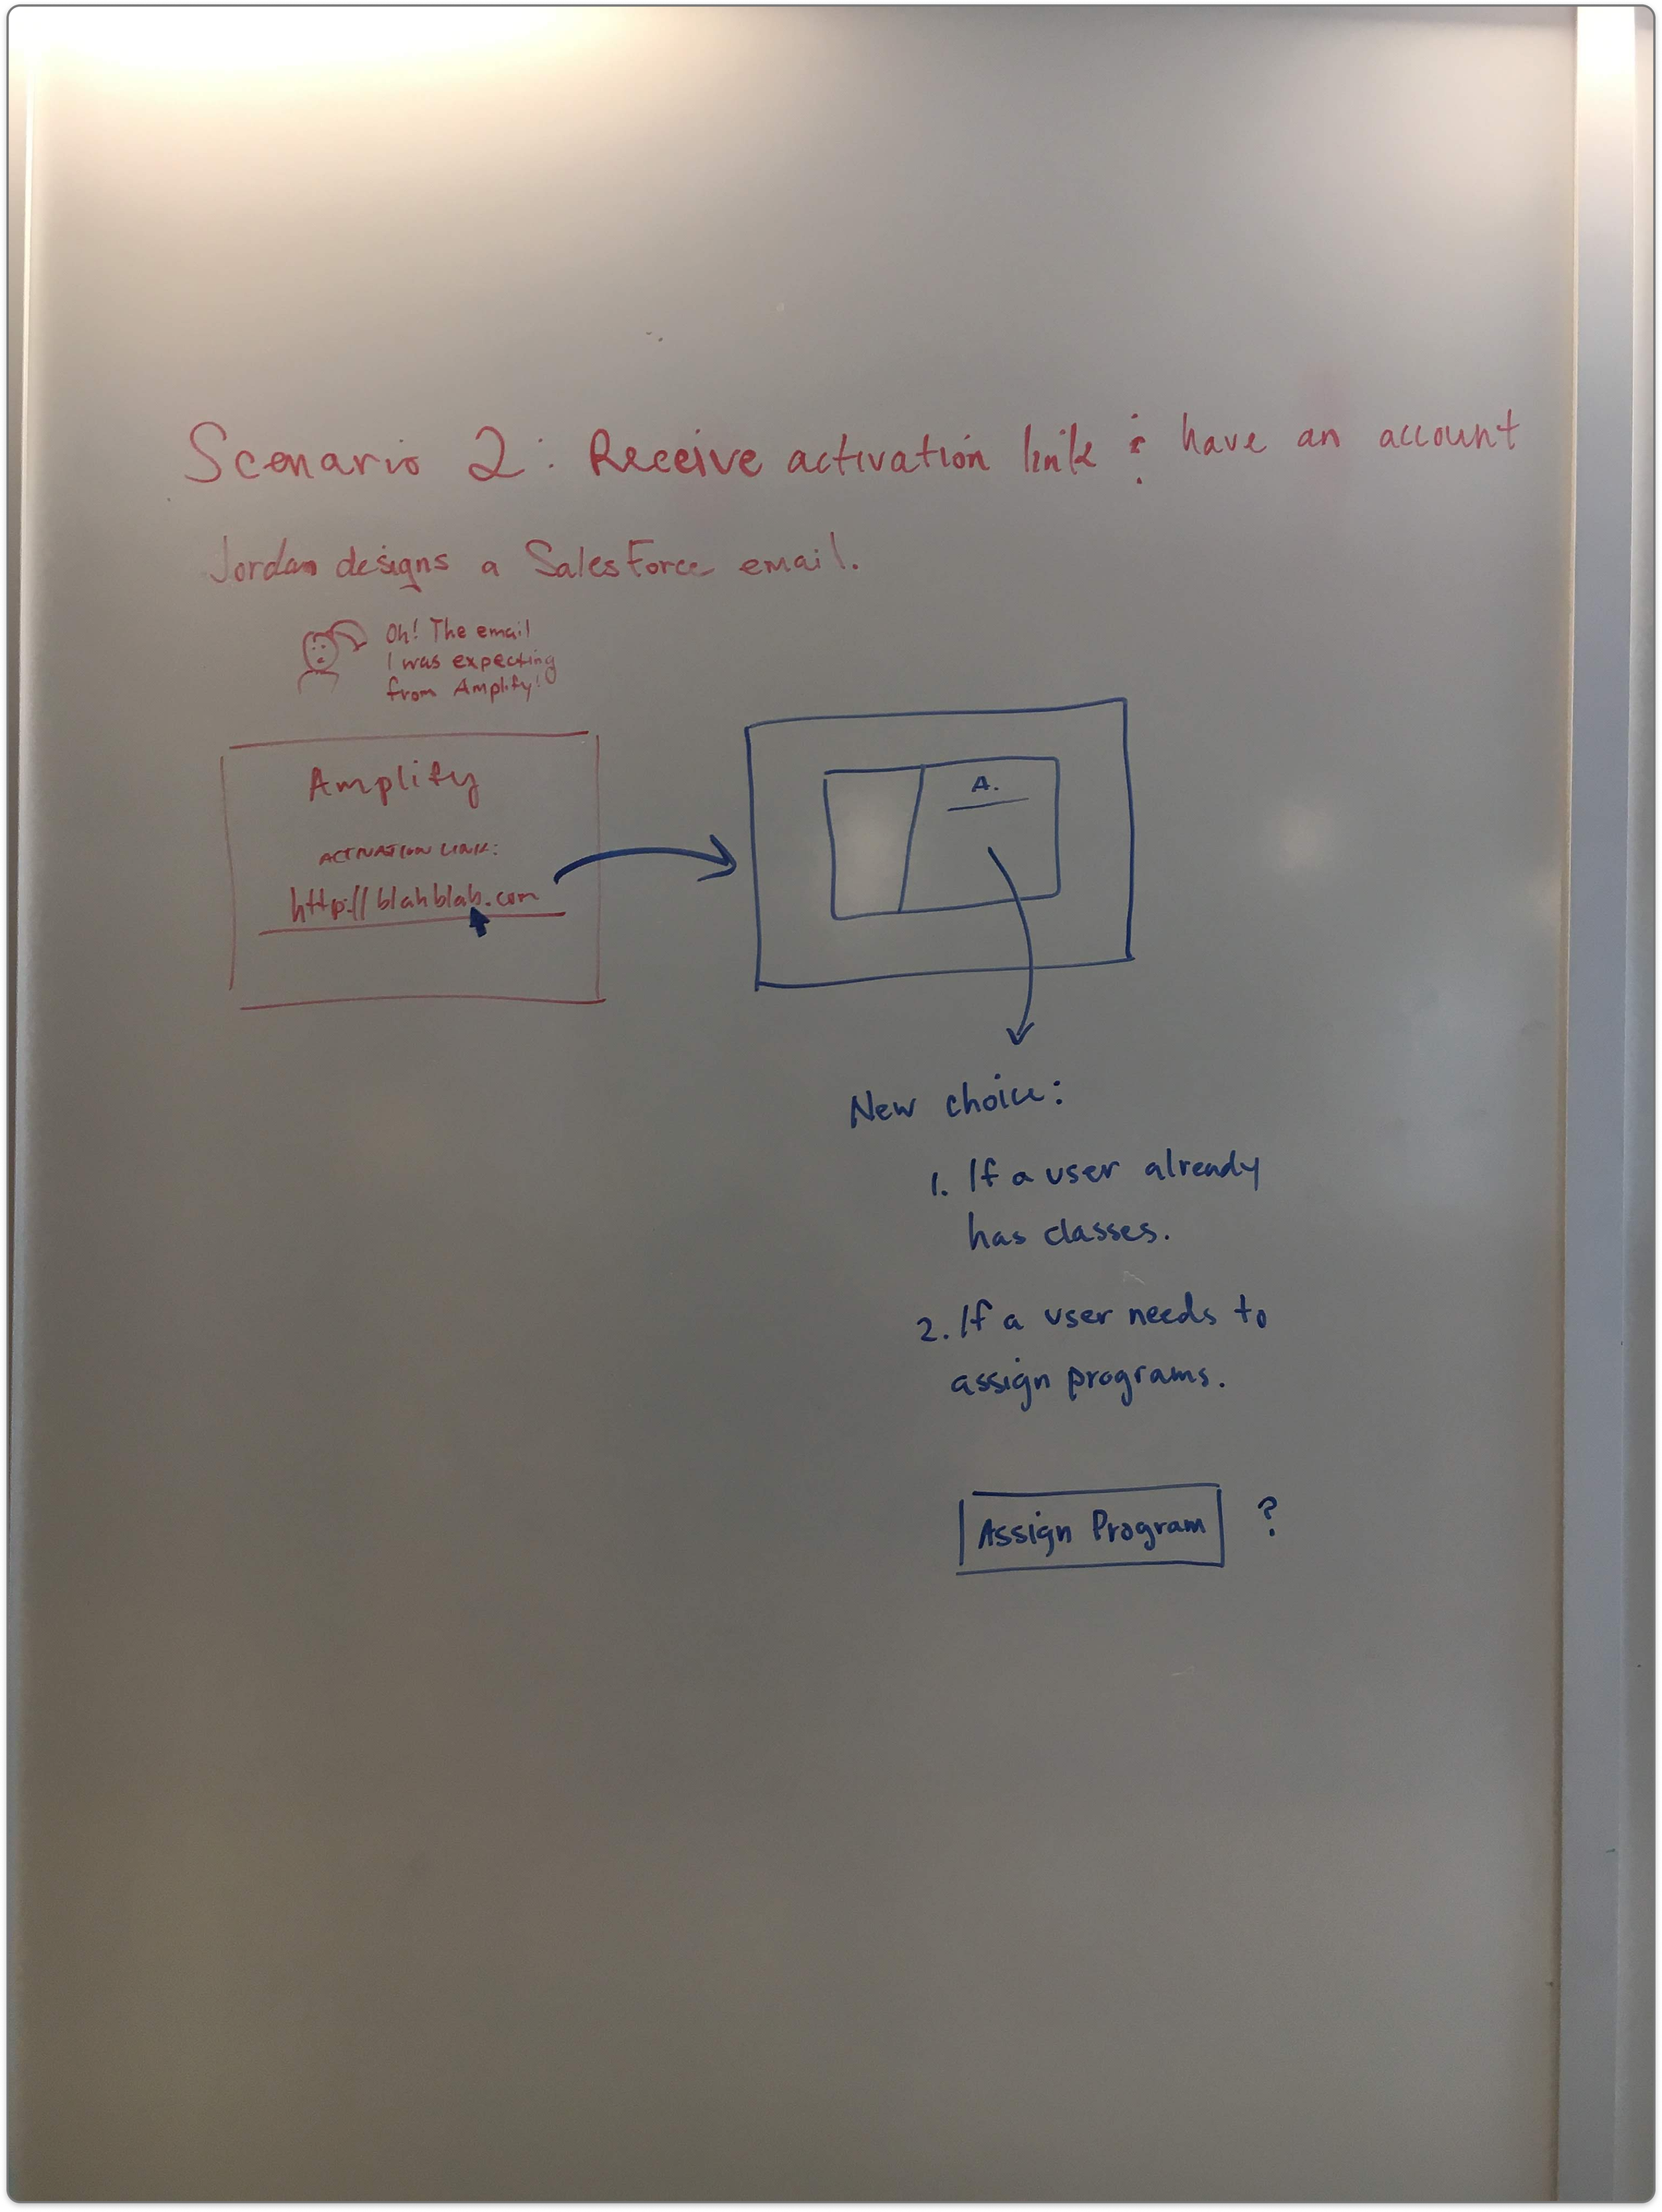 Scenario 2: Receive activation link & have an account
Jordan designs a SalesForce email.
Oh! The email
I was expecting
from Amplify!
Amplify
ACTIVATION LINK:
http://blahblah.com
A.
New choice:
1. If a user already
has classes.
2. If a user needs to
assign programs.
Assign Program ?